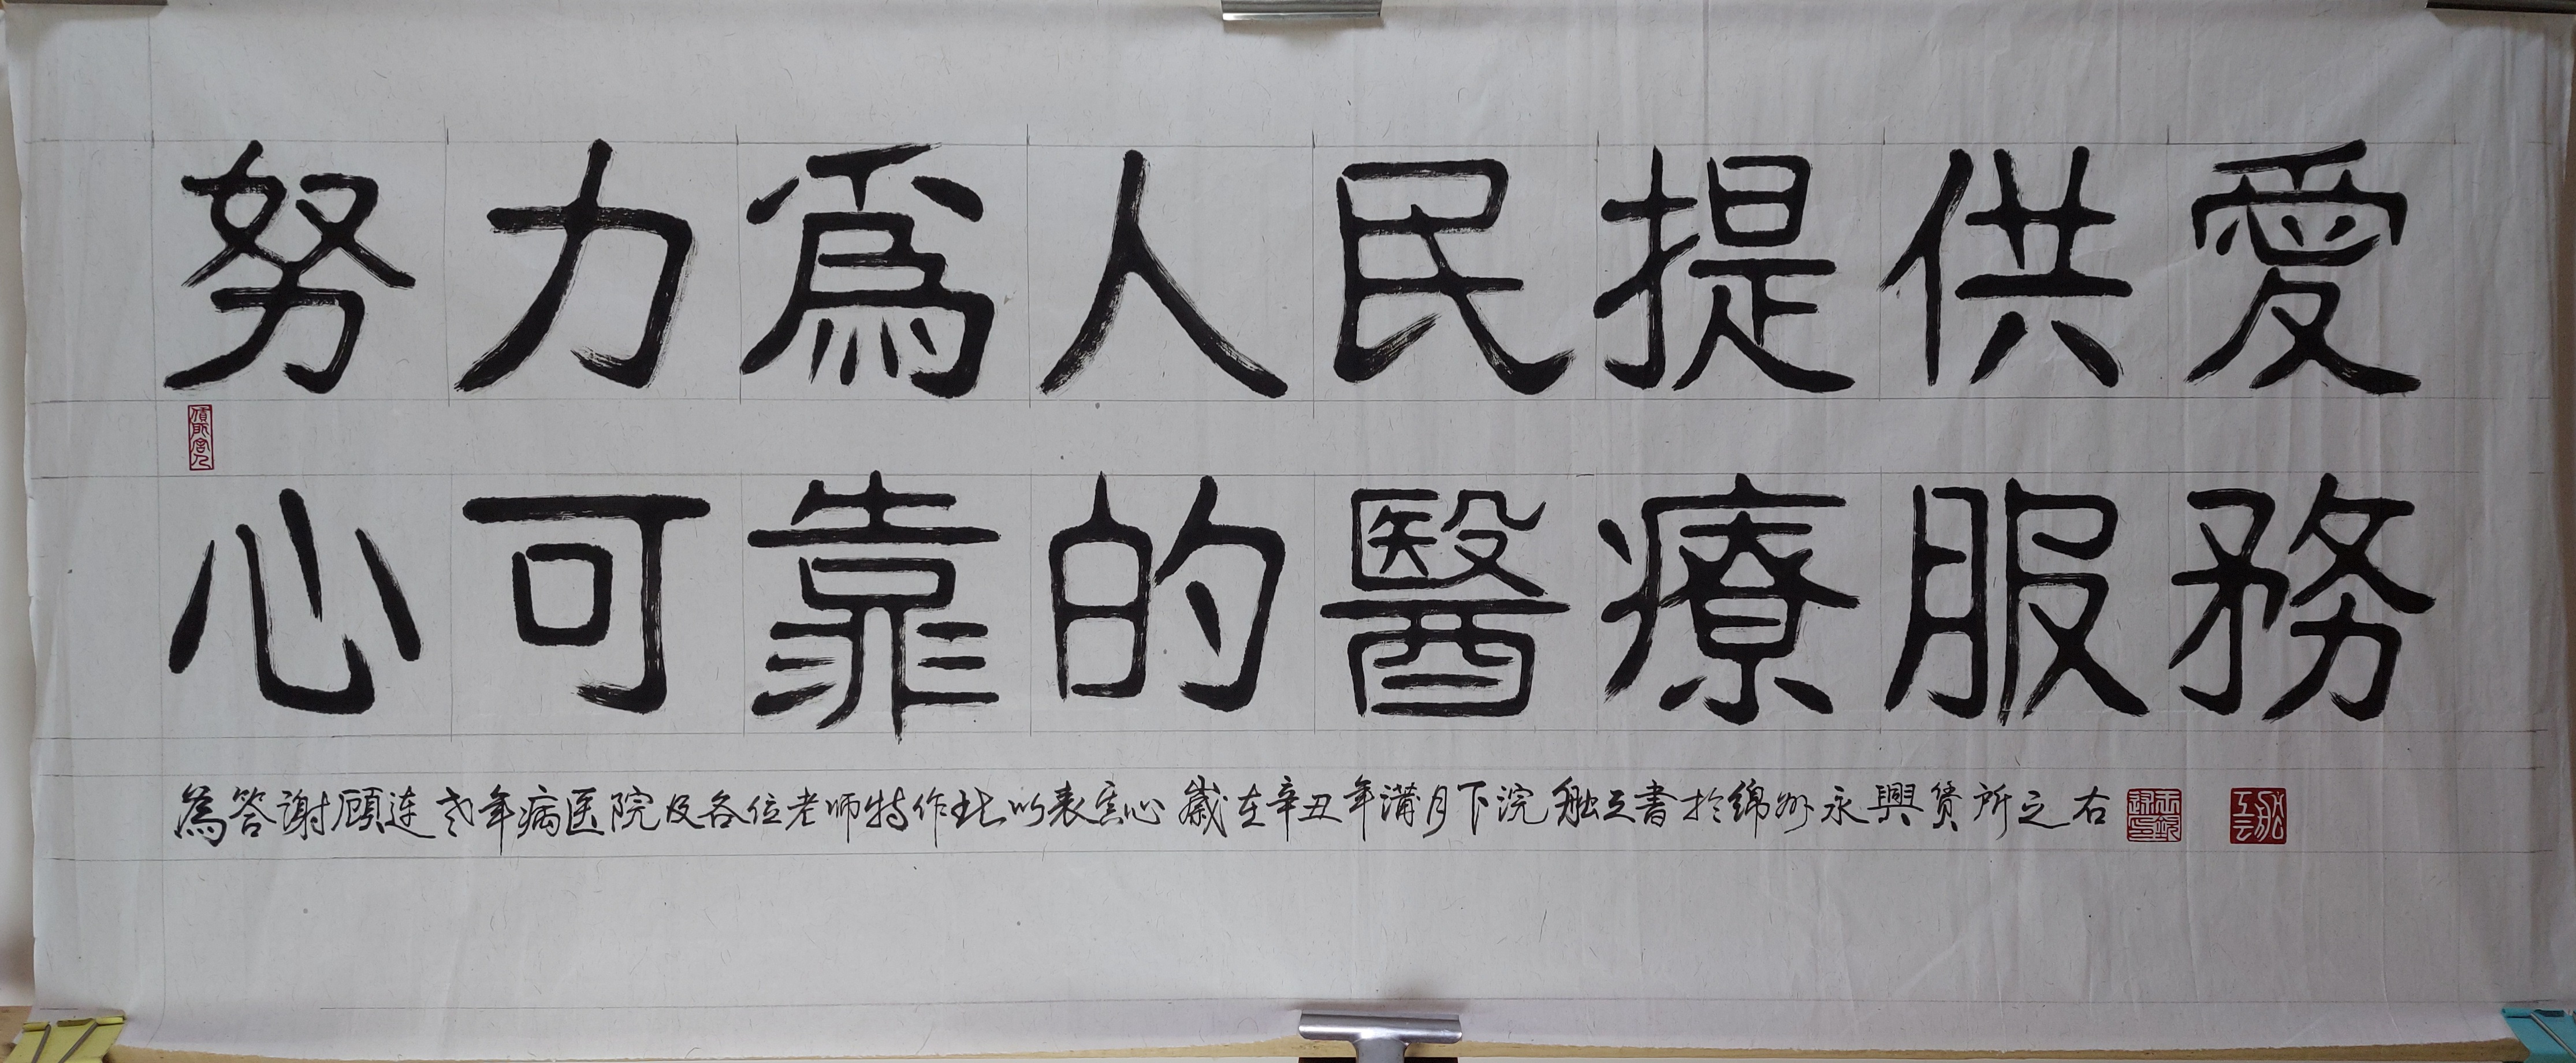 努力爲人民提供愛
心可靠的醫療服務
為答谢顾连老年病医院及各位老师特作此以表寸心 歲在辛丑年溝月下浣 書於綿州永興赁所之右